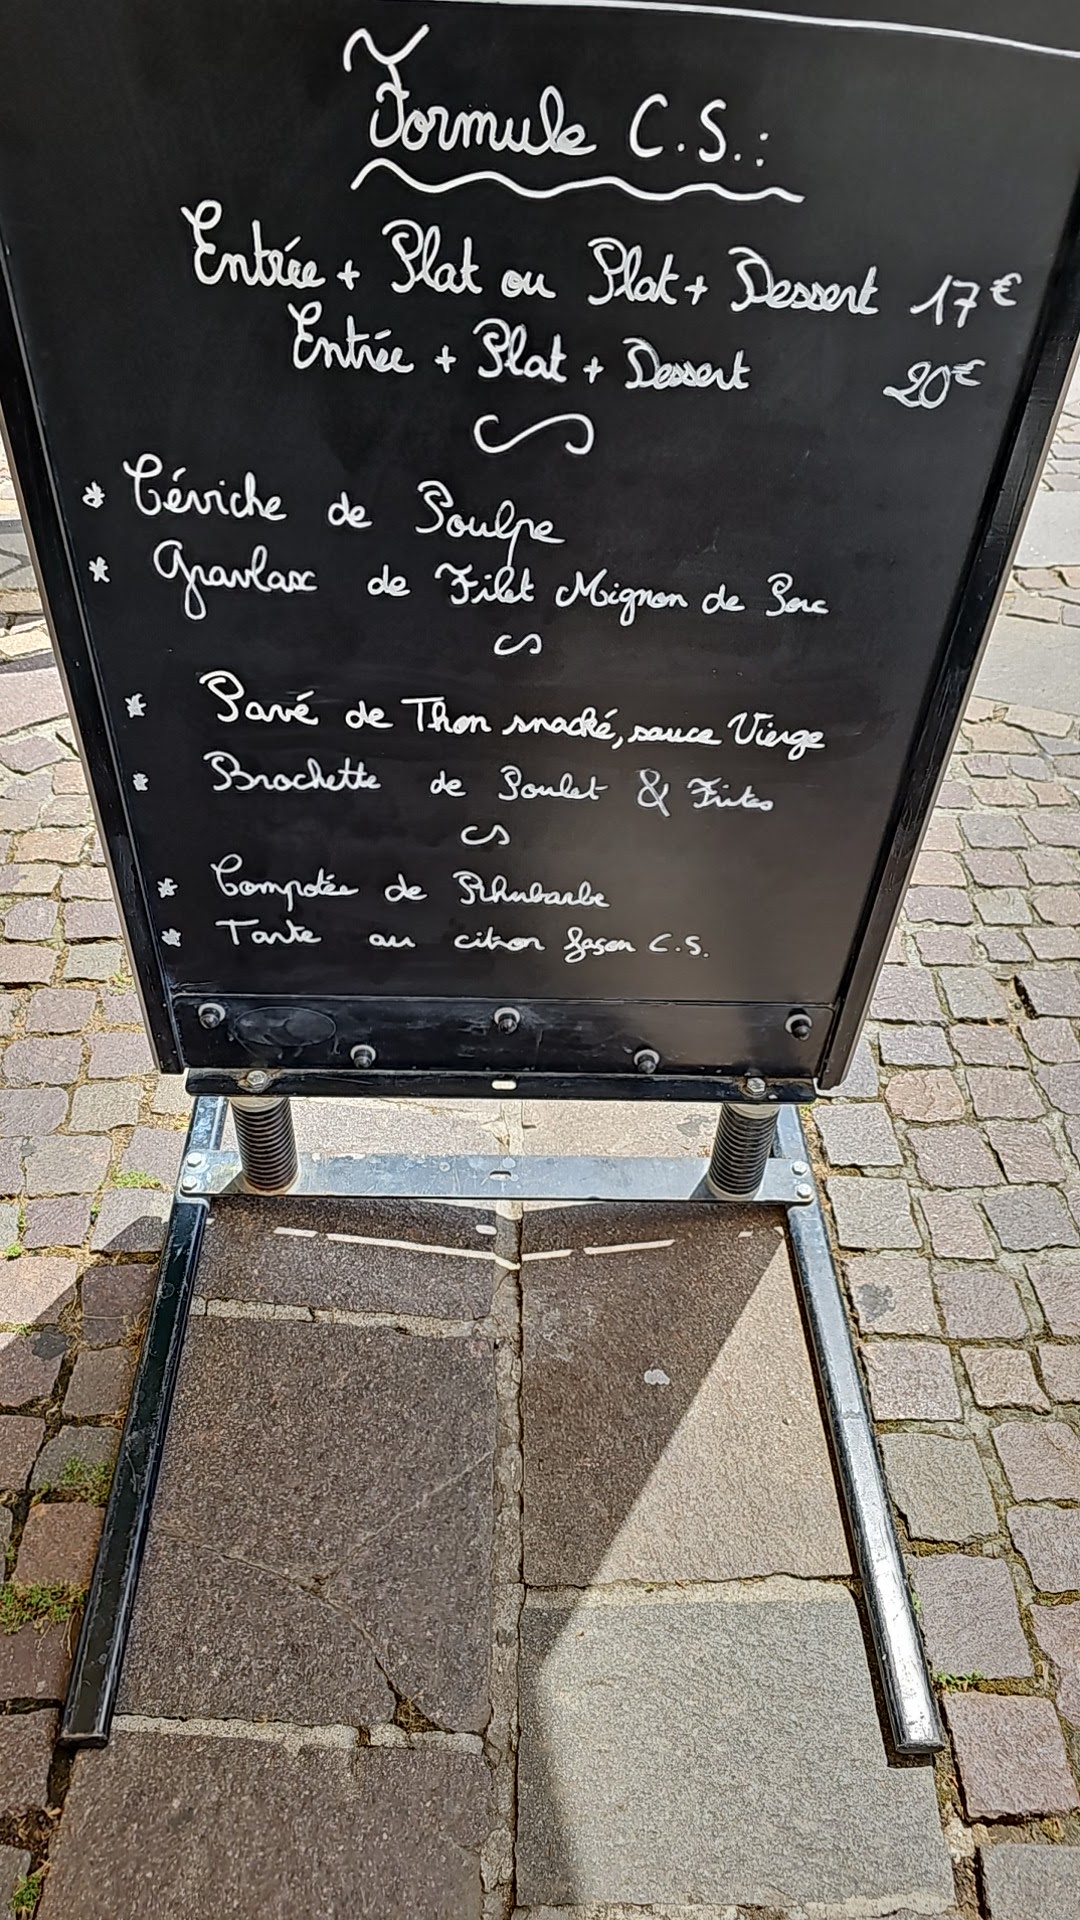 Formule C.S.:
Entrée + Plat ou Plat + Dessert 17€
Entrée + Plat + Dessert 20€
* Céviche de Poulpe
* Gravlax de Filet Mignon de Porc
* Pavé de Thon snacké, sauce Vierge
* Brochette de Poulet & Frites
* Compotée de Rhubarbe
* Tarte au citron façon C.S.